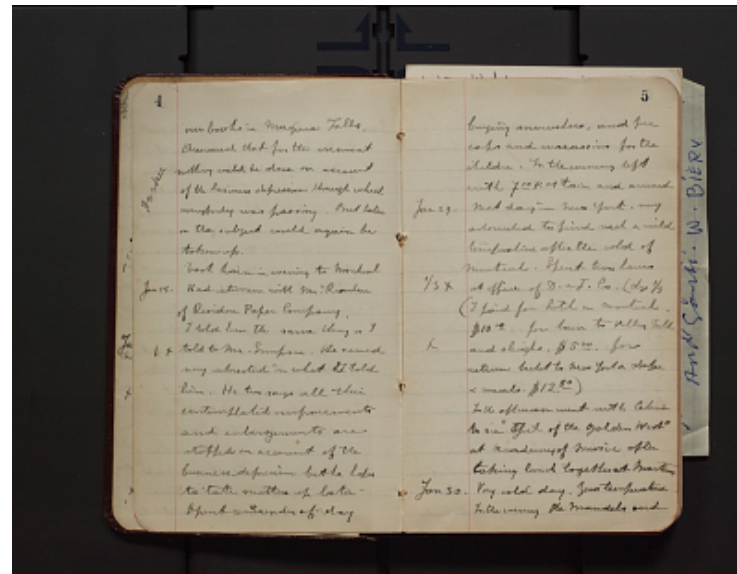 4
our books in Magara Falls.
that for the moment
nothing could be done on account
of the business depression through which
everybody was passing. But later
on the subject could again be
taken up.
Took train in evening to Montreal
Had interview with Mr. Riordon
of Riordon Paper Company.
I told him the same thing as I
told to Mr. Simpson. He seemed
very interested in what I told
him. He too says all their
contemplated improvements
and enlargements are
stopped on account of the
business depression but he
to take matters up later.
Spent remainder of day
5
buying snowshoes, and fur
caps and moccasins for the
children. In the evening left
with 7 train and arrived
Jan 29. next day in New York. very
astonished to find such a mild
temperature after the cold of
Montreal. Spent two hours
1/3 x at office of D. & F. Co.
(I paid for hotel in Montreal
$10.00 for
x and sleighs. $5.00 for
return ticket to New York
& meals. $12.80)
In the afternoon went with Celine
to see "Girl of the Golden West"
at Academy of Music after
taking lunch together at Martin
Jan 30. Very cold day. Zero temperature
In the evening the Mandels and
And Gösti. W. BIERY